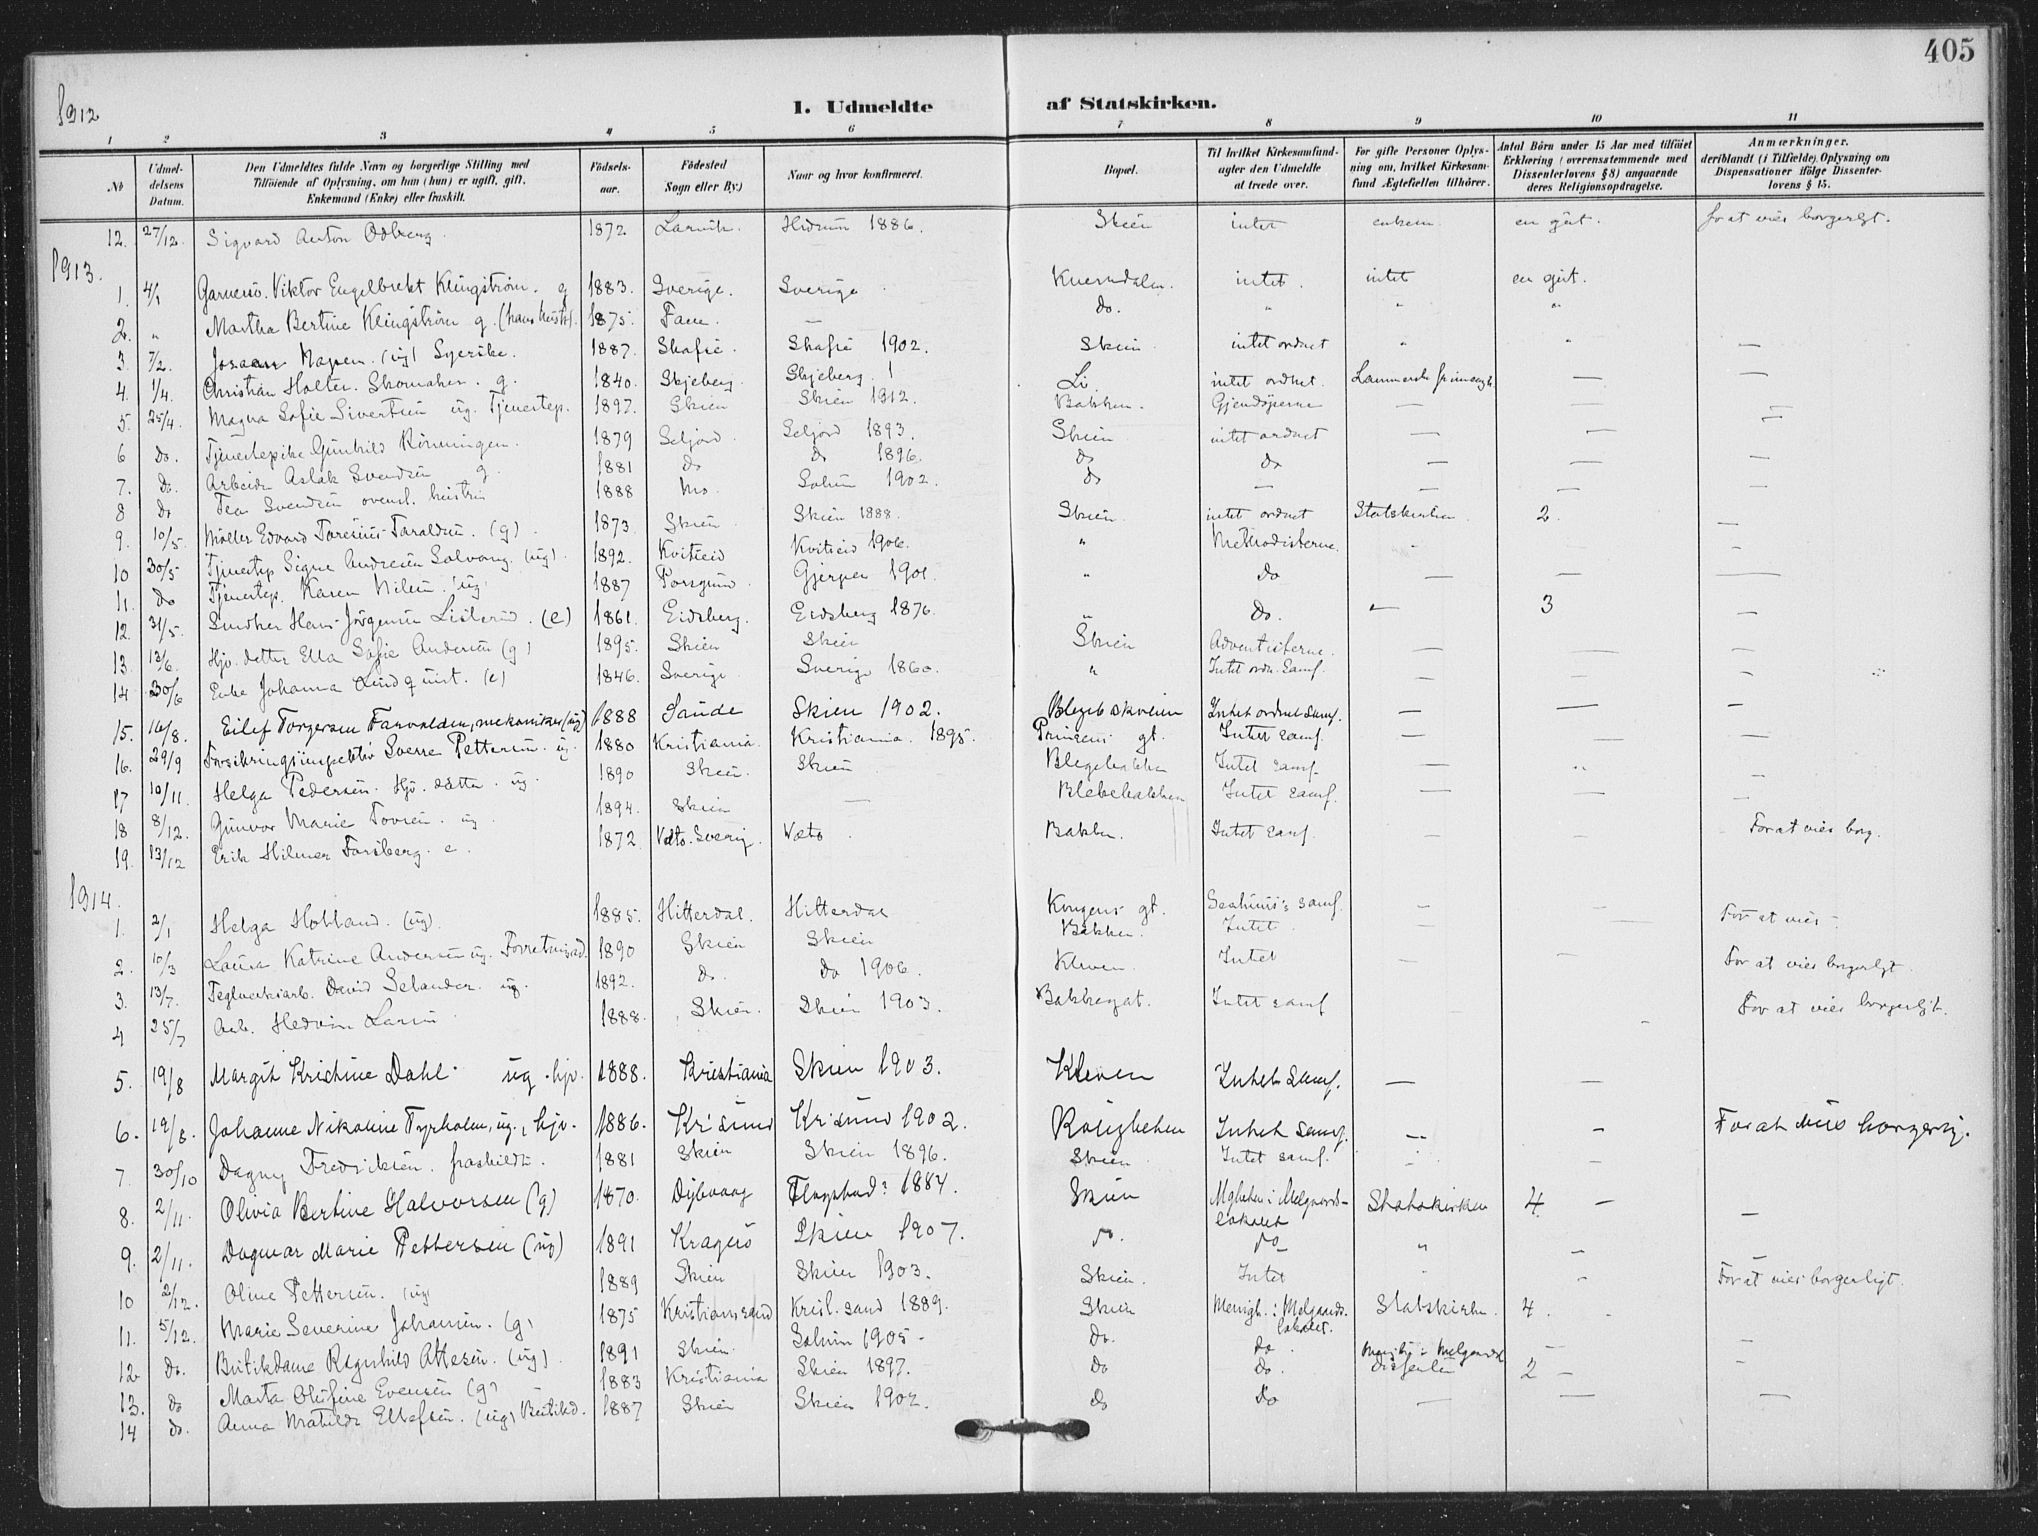 405
1912
1. Udmeldte af Statskirken.
1 2 3 4 5 6 7 8 9 10 11
No
Udmel-
delsens
Datum.
Den Udmeldtes fulde Navn og borgerlige Stilling med
Tilføiende af Oplysning, om han (hun) er ugift, gift,
Enkemand (Enke) eller fraskilt.
Födsels-
aar.
Födested
Sogn eller By.)
Naar og hvor konfirmeret.
Bopæl.
Til hvilket Kirkesamfund
agter den Udmeldte
at træde over.
For gifte Personer Oplys-
ning om, hvilket Kirkesam-
fund Ægtefællen tilhörer.
Antal Börn under 15 Aar med tilföiet
Erklæring (overensstemmende med
Dissenterlovens § 8) angaaende
deres Religionsopdragelse.
Anmærkninger,
deriblandt (i Tilfælde) Oplysning om
Dispensationer ifölge Dissenter-
lovens § 15.
12. 27/12. Sigvard Anton Odberg. 1872 Larvik. Hedrum 1886. Skien intet enkem. en gut. for at vies borgerligt.
1913.
1. Viktor Engelbrekt Klingström. g 1883. Sverige. Sverige intet. intet en gut.
2. " Martha Bertine Klingström g. (hans hustr). 1875. Fane. — do. " " "
3. 7/2. (ug) 1887. 1902. Skien intet ordnet " " —
4. 1/4. Christian Holter. Skomaker. g. 1840. Skjeberg. Skjeberg. Li. intet ordnet. — —
5. 25/4. Magna Sofie Sivertsen ug. Tjenestep. 1897. Skien Skien 1912. Bakken. — — —
6 Do. Tjenestepike Gunhild Rönningen. 1879 Seljord. Seljord 1893. Skien intet ordnet — — —
7. Do. Arbeider Aslak Svendsen g. 1881 do do 1896. do do — — —
8 do Tea Svendsen ovenst. hustru 1888 Mo. Solum 1902. do — — — —
9. 10/5. Möller Edvard Taraldsen. (g). 1873. Skien Skien 1888. Skien. intet ordnet Statskirken. 2. —
10 30/5 Tjenestep Signe Andresen Solvang. (ug). 1892. Kviteid Kviteid 1906. " Methodisterne. " —
11. do Tjenestep. Karen Nilsen. (ug) 1887 Porsgrund. Gjerpen " do — — —
12. 31/5. Hans Jörgensen (e) 1861. Eidsberg. Eidsberg 1876. " do. — 3 —
13. 13/6. Hjv. datter Ella Sofie Andersen (g) 1895. Skien Skien Skien Adventisterne. — — —
14 30/6 Enke Johanna Lindquist. (e) 1846. Sverige Sverige 1860. " Intet ordn. Samf. — — —
15. 16/8. Eilef Torgersen Farvolden, mekaniker (ug) 1888 Sande Skien 1902. Intet ordnet Samf. — — —
16. 29/9 Forsikringsinspektör Sverre Pettersen. ug 1880 Kristiania. Kristiania. 1895. Prinsens gt. Intet samf. — — —
17 10/11. Helga Pedersen. Hjv. datter. ug. 1890 Skien. Skien Intet samf. — " —
18 8/12. Gunvor Marie Tovsen. ug. 1894. Skien — Intet samf. — — —
19. 13/12 Erik Hilmer Forsberg. e. 1872. Bakken. Intet samf. — — For at vies borg.
1914.
1. 2/1 Helga Hobland. (ug). 1885. Hitterdal. Hitterdal Kongens gt. samf. — — For at vies
2. 10/3 Laura Katrine Andersen ug. 1890 Skien Skien Bakken. Intet. —
3. 13/7. Teglverksarb. David Selander. ug. 1892. do. Do 1906. Kleven. Intet For at vies borgerligt.
4 25/7 Arb. 1888. Skien. Skien 1903. Intet samf For at vies borgerligt.
5. 19/8 Margit Kristine Dahl. ug. hjv. 1888. Kristiania Skien 1903. Kleven Intet Samf. — —
6. 19/8. Johanne Nikoline Tyrholm, ug., hjv. 1886. Kr.sund Kr.sund 1902. Intet samf. — — For at vies borgerlig.
7. 30/10 Dagny Fredriksen. fraskildt. 1881 Skien Skien 1896. Skien Intet samf. — —
8. 2/11. Olivia Bertine Halvorsen (g) 1870. Dybvaag 1884. Skien Mgheten i Melgaards-
lokalet Statskirken 4. — —
9. 2/11. Dagmar Marie Pettersen (ug) 1891 Kragerö Skien 1907. do. do " — —
10 2/12. Oline Pettersen. (ug) 1889 Skien Skien 1903. Skien. Intet For at vies borgerligt.
11. 5/12. Marie Severine Johansen. (g) 1875 Kristianssand Krist.sand 1889. Skien Menigh. i Melgaards.
lokalet. Statskirken. 4. —
12. Do. Butikdame Ragnhild (ug). 1891 Skien. Solum 1905. Do. do. — —
13. do Marta Olufine Evensen (g) 1883 Kristiania Skien 1897. Do do. Menigh. i Melgaards
dissenter 2 —
14 do. Anna Matilde Ellefsen. (ug) Butikd. 1887 Skien Skien 1902. do do — — —